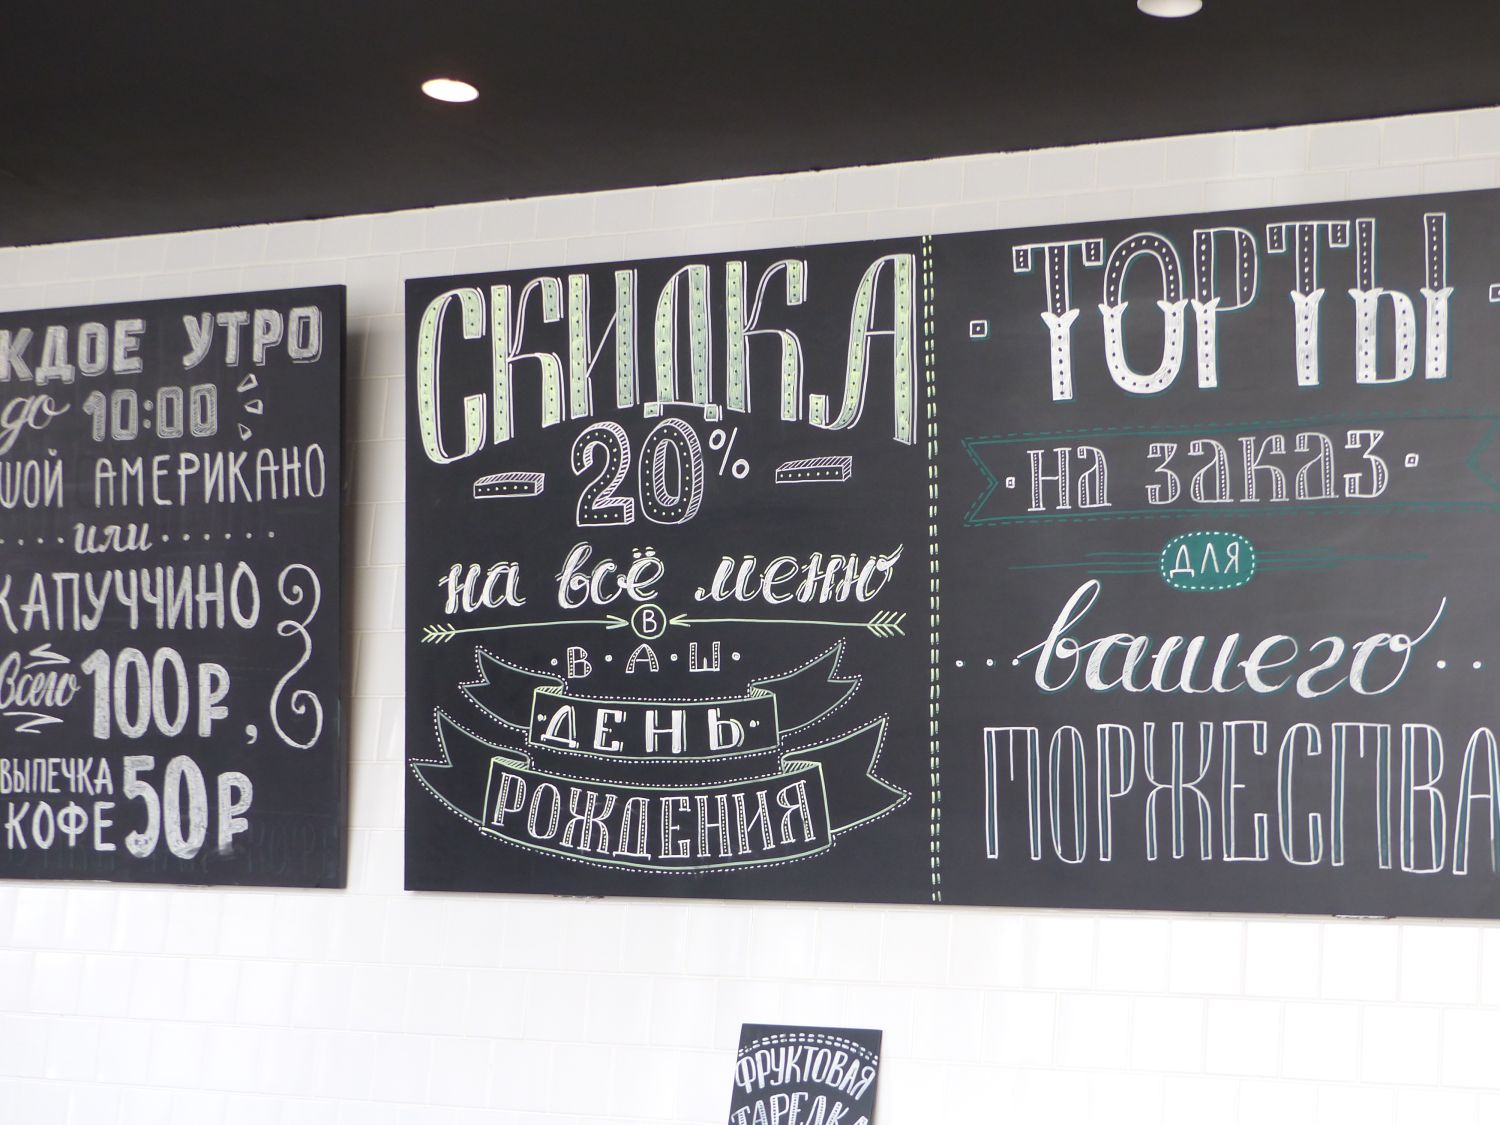 КДОЕ УТРО
до 10:00
ШОЙ АМЕРИКАНО
или
КАПУЧЧИНО
всего 100₽,
ВЫПЕЧКА
КОФЕ 50₽
СКИДКА
- 20% -
на всё меню
В
ВАШ
ДЕНЬ
РОЖДЕНИЯ
ТОРТЫ
НА ЗАКАЗ
ДЛЯ
вашего
ТОРЖЕСТВА
ФРУКТОВАЯ
ТАРЕЛКА